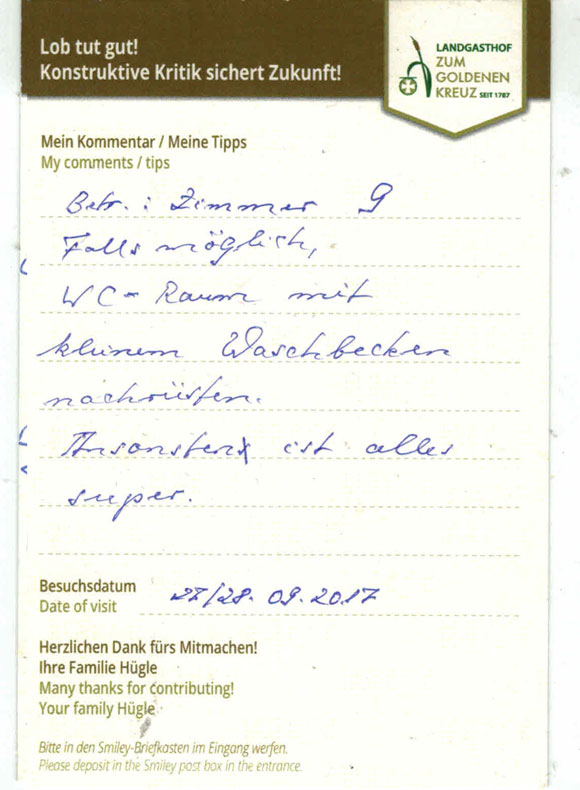 Lob tut gut!
Konstruktive Kritik sichert Zukunft!
LANDGASTHOF
ZUM
GOLDENEN
KREUZ SEIT 1787
Mein Kommentar / Meine Tipps
My comments / tips
Betr.: Zimmer 9
Falls möglich,
WC - Raum mit
kleinem Waschbecken
nachrüsten.
Ansonsten ist alles
super.
Besuchsdatum
Date of visit
27/28. 09. 2017
Herzlichen Dank fürs Mitmachen!
Ihre Familie Hügle
Many thanks for contributing!
Your family Hügle
Bitte in den Smiley-Briefkasten im Eingang werfen.
Please deposit in the Smiley post box in the entrance.